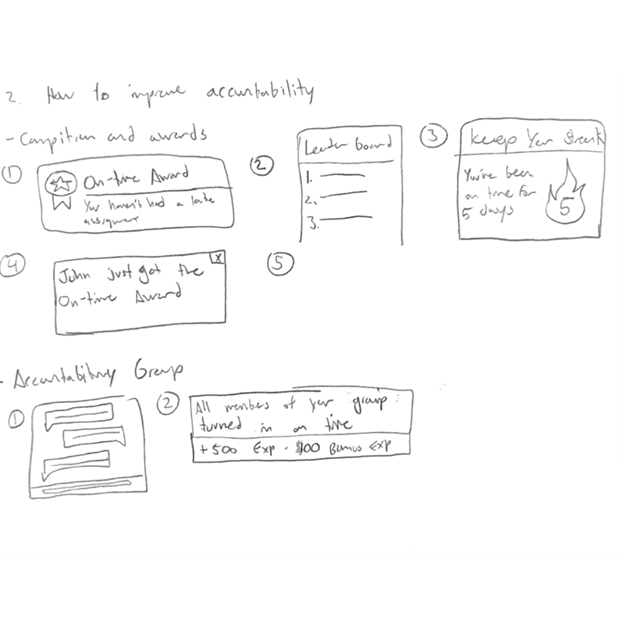 2. How to improve accountability
- Compition and awards
①
On-time Award
You haven't had a late
assignment
②
Leader Board
1.
2.
3.
③
Keep Your Streak
You've been
on time for
5 days
5
④
x
John just got the
On-time Award
⑤
- Accountability Group
①
②
All members of your group
turned in on time
+500 Exp - 100 Bonus Exp